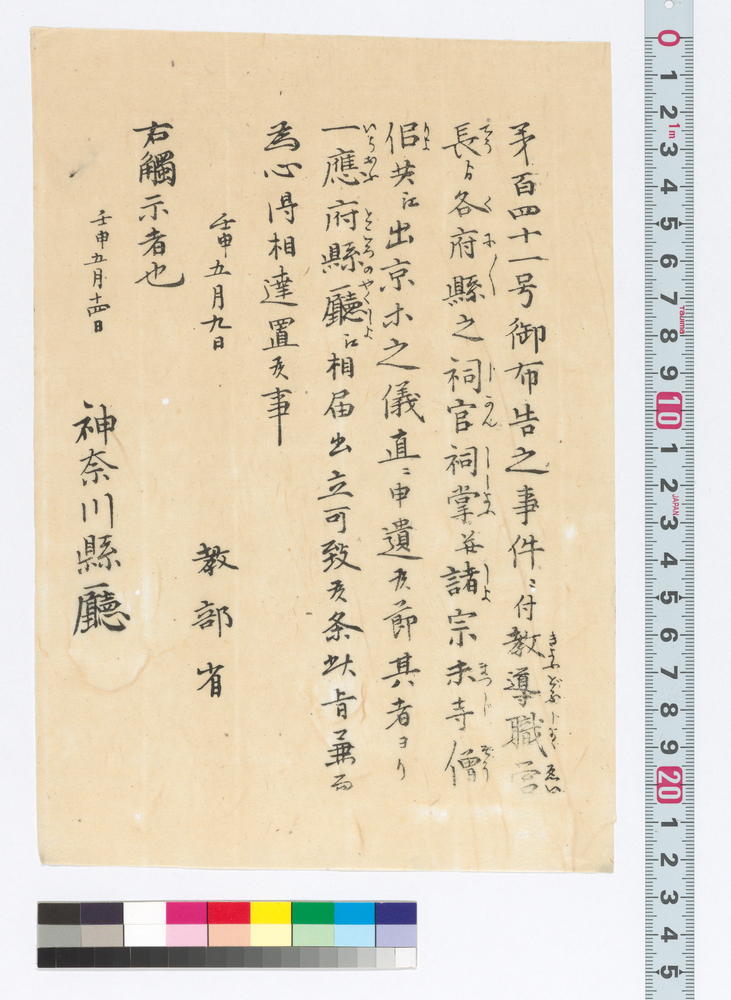 第百四十一号御布告之事件ニ付教導職管
長ゟ各府縣之祠官祠掌并諸宗末寺僧
侶共江出京等之儀直ニ申遣候節其者ヨリ
一應府縣廳江相届出立可致候条此旨兼而
為心得相達置候事
壬申五月九日
教部省
右觸示者也
壬申五月十四日
神奈川縣廳
0 1 2 3 4 5 6 7 8 9 10 1 2 3 4 5 6 7 8 9 20 1 2 3 4 5
1m
Tajima
JAPAN